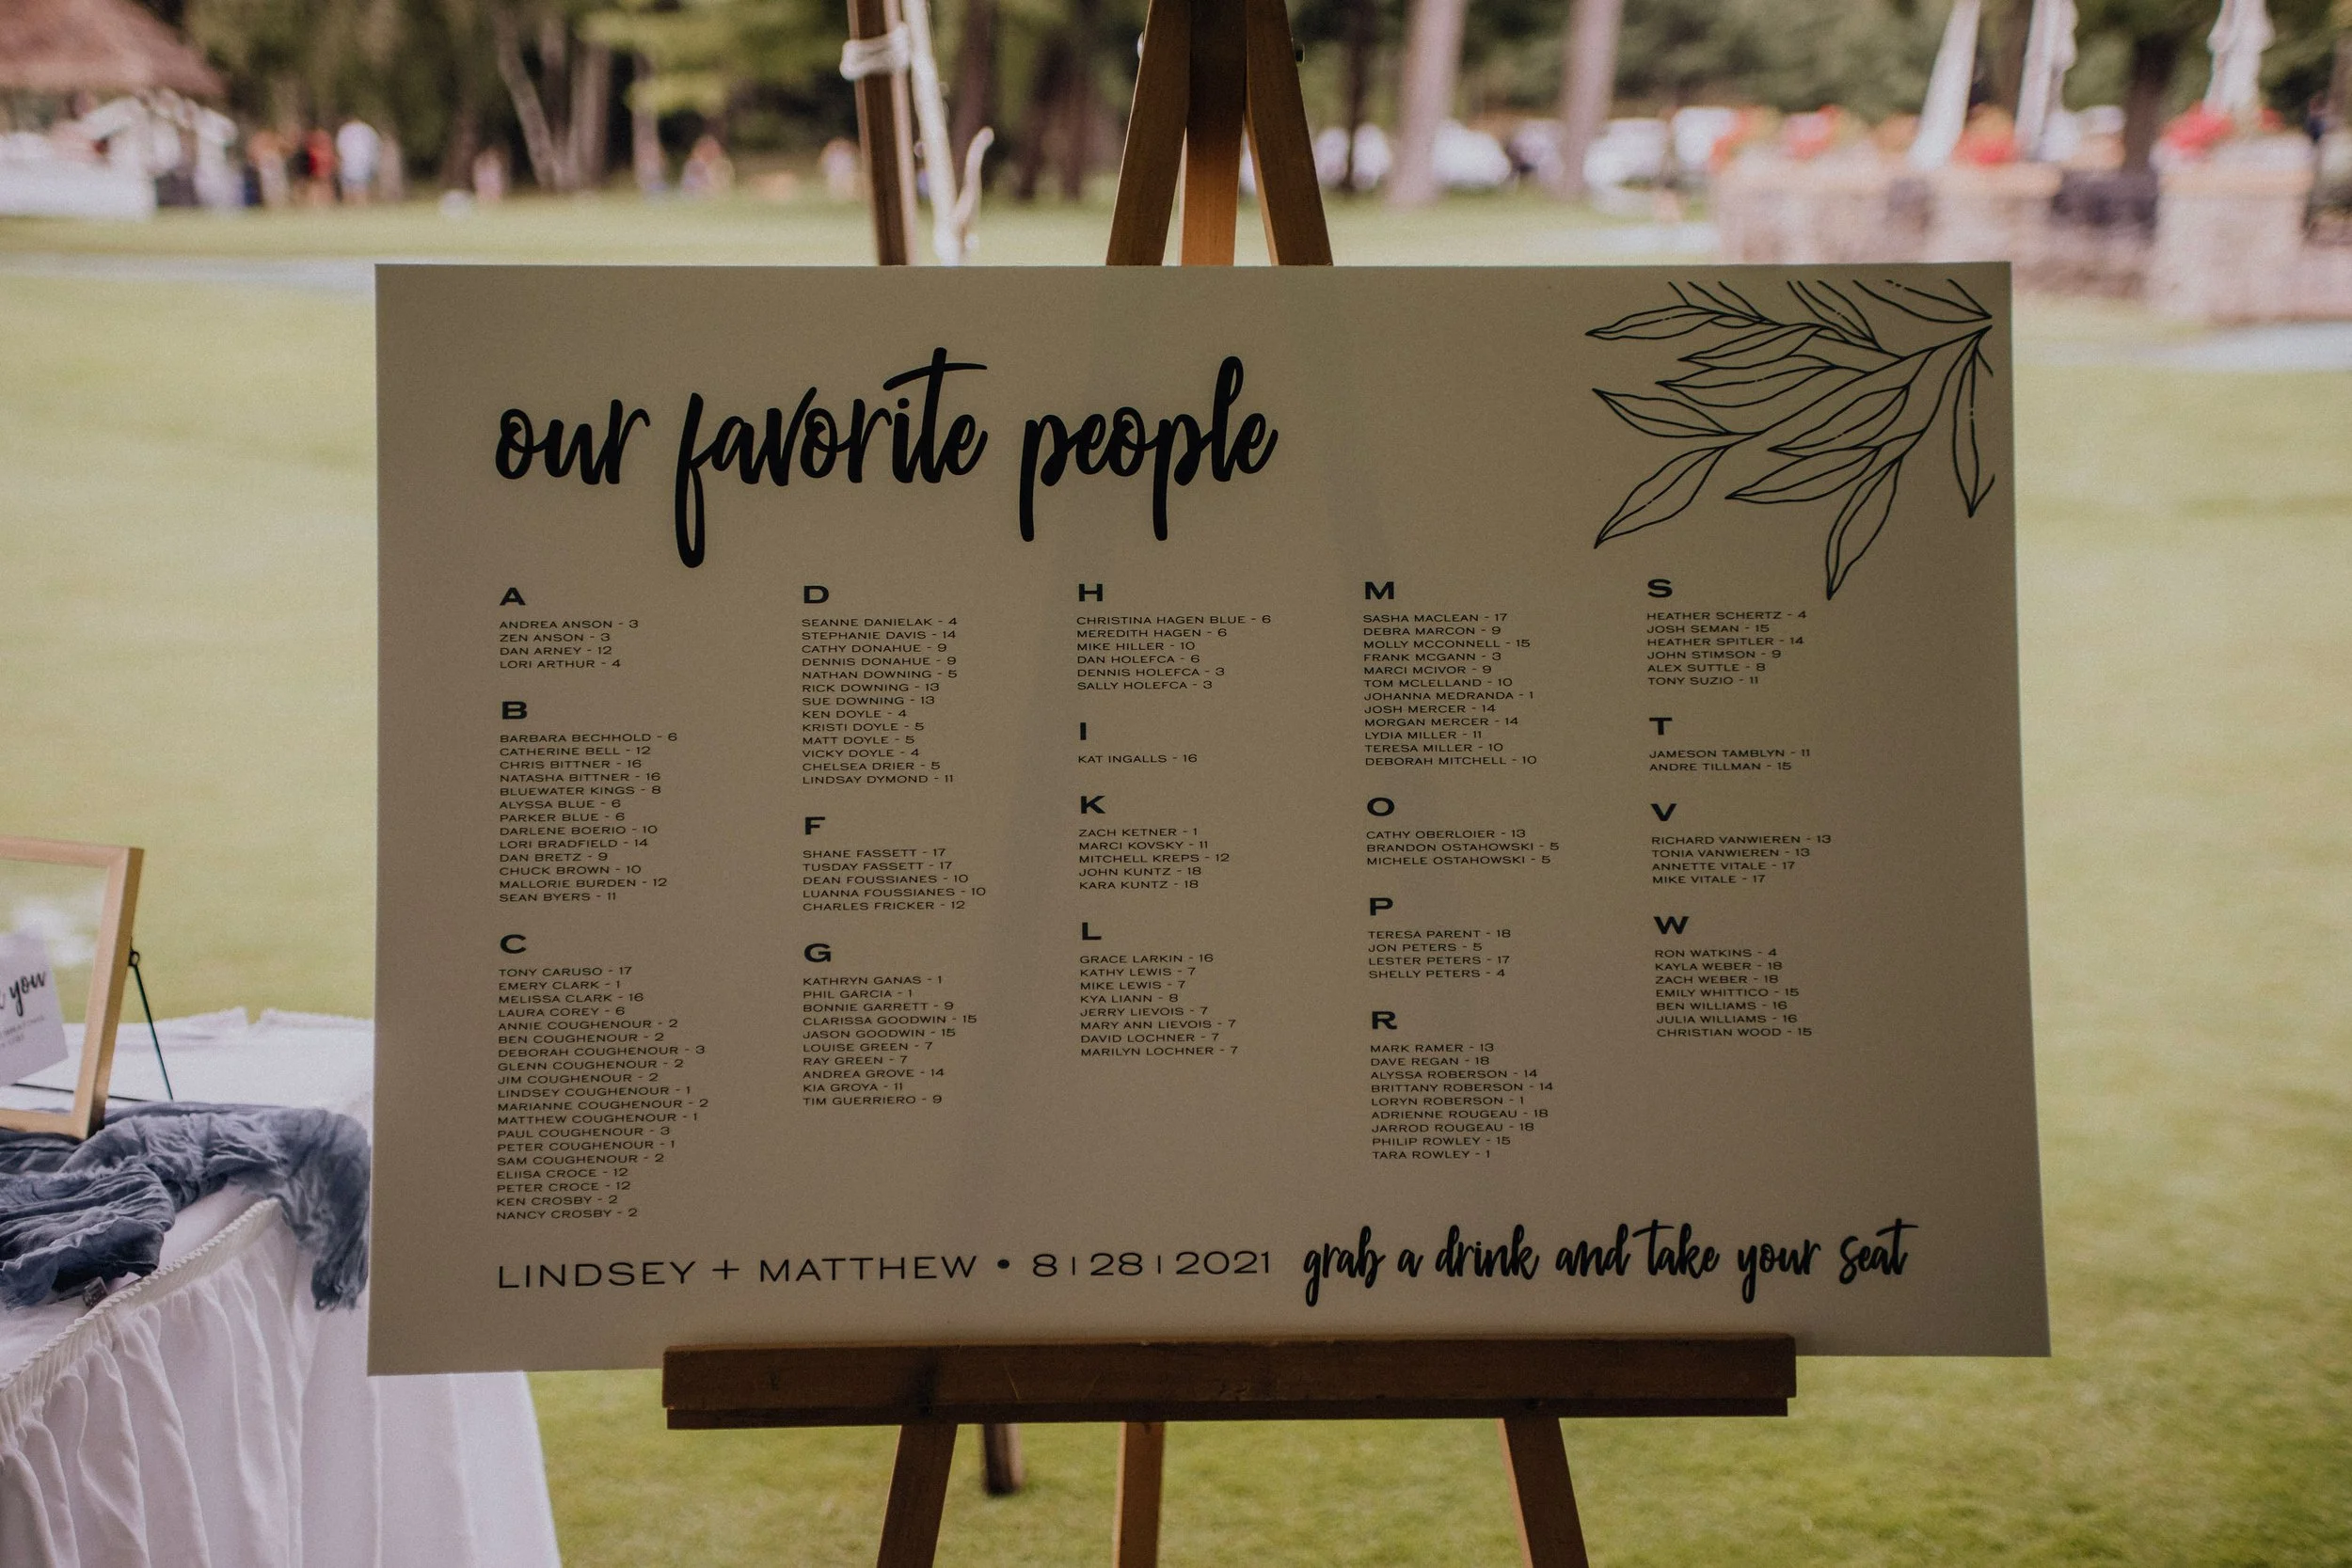 our favorite people
A
ANDREA ANSON - 3
ZEN ANSON - 3
DAN ARNEY - 12
LORI ARTHUR - 4
B
BARBARA BECHHOLD - 6
CATHERINE BELL - 12
CHRIS BITTNER - 16
NATASHA BITTNER - 16
BLUEWATER KINGS - 8
ALYSSA BLUE - 6
PARKER BLUE - 6
DARLENE BOERIO - 10
LORI BRADFIELD - 14
DAN BRETZ - 9
CHUCK BROWN - 10
MALLORIE BURDEN - 12
SEAN BYERS - 11
C
TONY CARUSO - 17
EMERY CLARK - 1
MELISSA CLARK - 16
LAURA COREY - 6
ANNIE COUGHENOUR - 2
BEN COUGHENOUR - 2
DEBORAH COUGHENOUR - 3
GLENN COUGHENOUR - 2
JIM COUGHENOUR - 2
LINDSEY COUGHENOUR - 1
MARIANNE COUGHENOUR - 2
MATTHEW COUGHENOUR - 1
PAUL COUGHENOUR - 3
PETER COUGHENOUR - 1
SAM COUGHENOUR - 2
ELIISA CROCE - 12
PETER CROCE - 12
KEN CROSBY - 2
NANCY CROSBY - 2
D
SEANNE DANIELAK - 4
STEPHANIE DAVIS - 14
CATHY DONAHUE - 9
DENNIS DONAHUE - 9
NATHAN DOWNING - 5
RICK DOWNING - 13
SUE DOWNING - 13
KEN DOYLE - 4
KRISTI DOYLE - 5
MATT DOYLE - 5
VICKY DOYLE - 4
CHELSEA DRIER - 5
LINDSAY DYMOND - 11
F
SHANE FASSETT - 17
TUSDAY FASSETT - 17
DEAN FOUSSIANES - 10
LUANNA FOUSSIANES - 10
CHARLES FRICKER - 12
G
KATHRYN GANAS - 1
PHIL GARCIA - 1
BONNIE GARRETT - 9
CLARISSA GOODWIN - 15
JASON GOODWIN - 15
LOUISE GREEN - 7
RAY GREEN - 7
ANDREA GROVE - 14
KIA GROYA - 11
TIM GUERRIERO - 9
H
CHRISTINA HAGEN BLUE - 6
MEREDITH HAGEN - 6
MIKE HILLER - 10
DAN HOLEFCA - 6
DENNIS HOLEFCA - 3
SALLY HOLEFCA - 3
I
KAT INGALLS - 16
K
ZACH KETNER - 1
MARCI KOVSKY - 11
MITCHELL KREPS - 12
JOHN KUNTZ - 18
KARA KUNTZ - 18
L
GRACE LARKIN - 16
KATHY LEWIS - 7
MIKE LEWIS - 7
KYA LIANN - 8
JERRY LIEVOIS - 7
MARY ANN LIEVOIS - 7
DAVID LOCHNER - 7
MARILYN LOCHNER - 7
M
SASHA MACLEAN - 17
DEBRA MARCON - 9
MOLLY MCCONNELL - 15
FRANK MCGANN - 3
MARCI MCIVOR - 9
TOM MCLELLAND - 10
JOHANNA MEDRANDA - 1
JOSH MERCER - 14
MORGAN MERCER - 14
LYDIA MILLER - 11
TERESA MILLER - 10
DEBORAH MITCHELL - 10
O
CATHY OBERLOIER - 13
BRANDON OSTAHOWSKI - 5
MICHELE OSTAHOWSKI - 5
P
TERESA PARENT - 18
JON PETERS - 5
LESTER PETERS - 17
SHELLY PETERS - 4
R
MARK RAMER - 13
DAVE REGAN - 18
ALYSSA ROBERSON - 14
BRITTANY ROBERSON - 14
LORYN ROBERSON - 1
ADRIENNE ROUGEAU - 18
JARROD ROUGEAU - 18
PHILIP ROWLEY - 15
TARA ROWLEY - 1
S
HEATHER SCHERTZ - 4
JOSH SEMAN - 15
HEATHER SPITLER - 14
JOHN STIMSON - 9
ALEX SUTTLE - 8
TONY SUZIO - 11
T
JAMESON TAMBLYN - 11
ANDRE TILLMAN - 15
V
RICHARD VANWIEREN - 13
TONIA VANWIEREN - 13
ANNETTE VITALE - 17
MIKE VITALE - 17
W
RON WATKINS - 4
KAYLA WEBER - 18
ZACH WEBER - 18
EMILY WHITTICO - 15
BEN WILLIAMS - 16
JULIA WILLIAMS - 16
CHRISTIAN WOOD - 15
LINDSEY + MATTHEW • 8|28|2021 grab a drink and take your seat
you